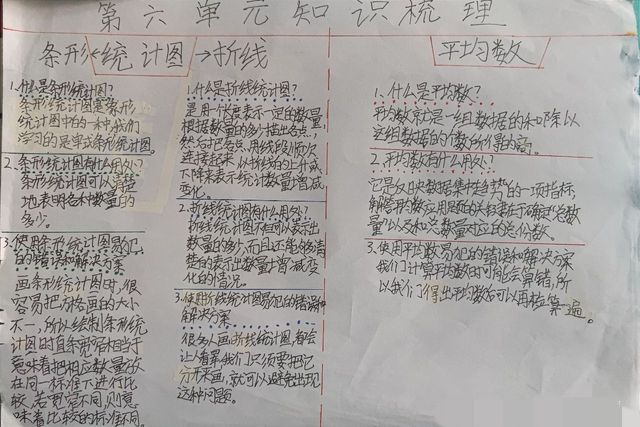 第六单元知识梳理
条形←统计图→折线
平均数
1.什么是条形统计图?
条形统计图是条形
统计图中的一种,我们
学习的是单式条形统计图。
2.条形统计图有什么用处?
条形统计图可以清楚
地表明各种数量的
多少。
3.使用条形统计图易犯
的错误和解决方案
画条形统计图时,很
容易把方格画的大小
不一,所以绘制条形统
计图时直条宽窄相当于
意味着把相应数量放
在同一标准下进行比
较,若宽窄不同,则意
味着比较的标准不同。
1.什么是折线统计图?
是用一个单位长度表示一定的数量
根据数量的多少描出各点,
然后把各点用线段顺次
连接起来,以折线的上升或
下降来表示统计数量增减
变化。
2.折线统计图有什么用处?
折线统计图不但可以表示出
数量的多少,而且还能够清
楚的表示出数量增减变
化的情况。
3.使用折线统计图易犯的错误和
解决方案
很多人画折线统计图,都会
让人看
我们只须要把它
分开来画,就可以避免出现
这种问题。
1.什么是平均数?
平均数就是一组数据的和除以
这组数据的个数所得的商。
2.平均数有什么用处?
它是反映数据集中趋势的一项指标,
解答平均数应用题的关键在于确定"总数
量"以及和总数量对应的总份数。
3.使用平均数易犯的错误和解决方案
我们计算平均数时可能会算错,所
以我们得出平均数后可以再检算一遍。